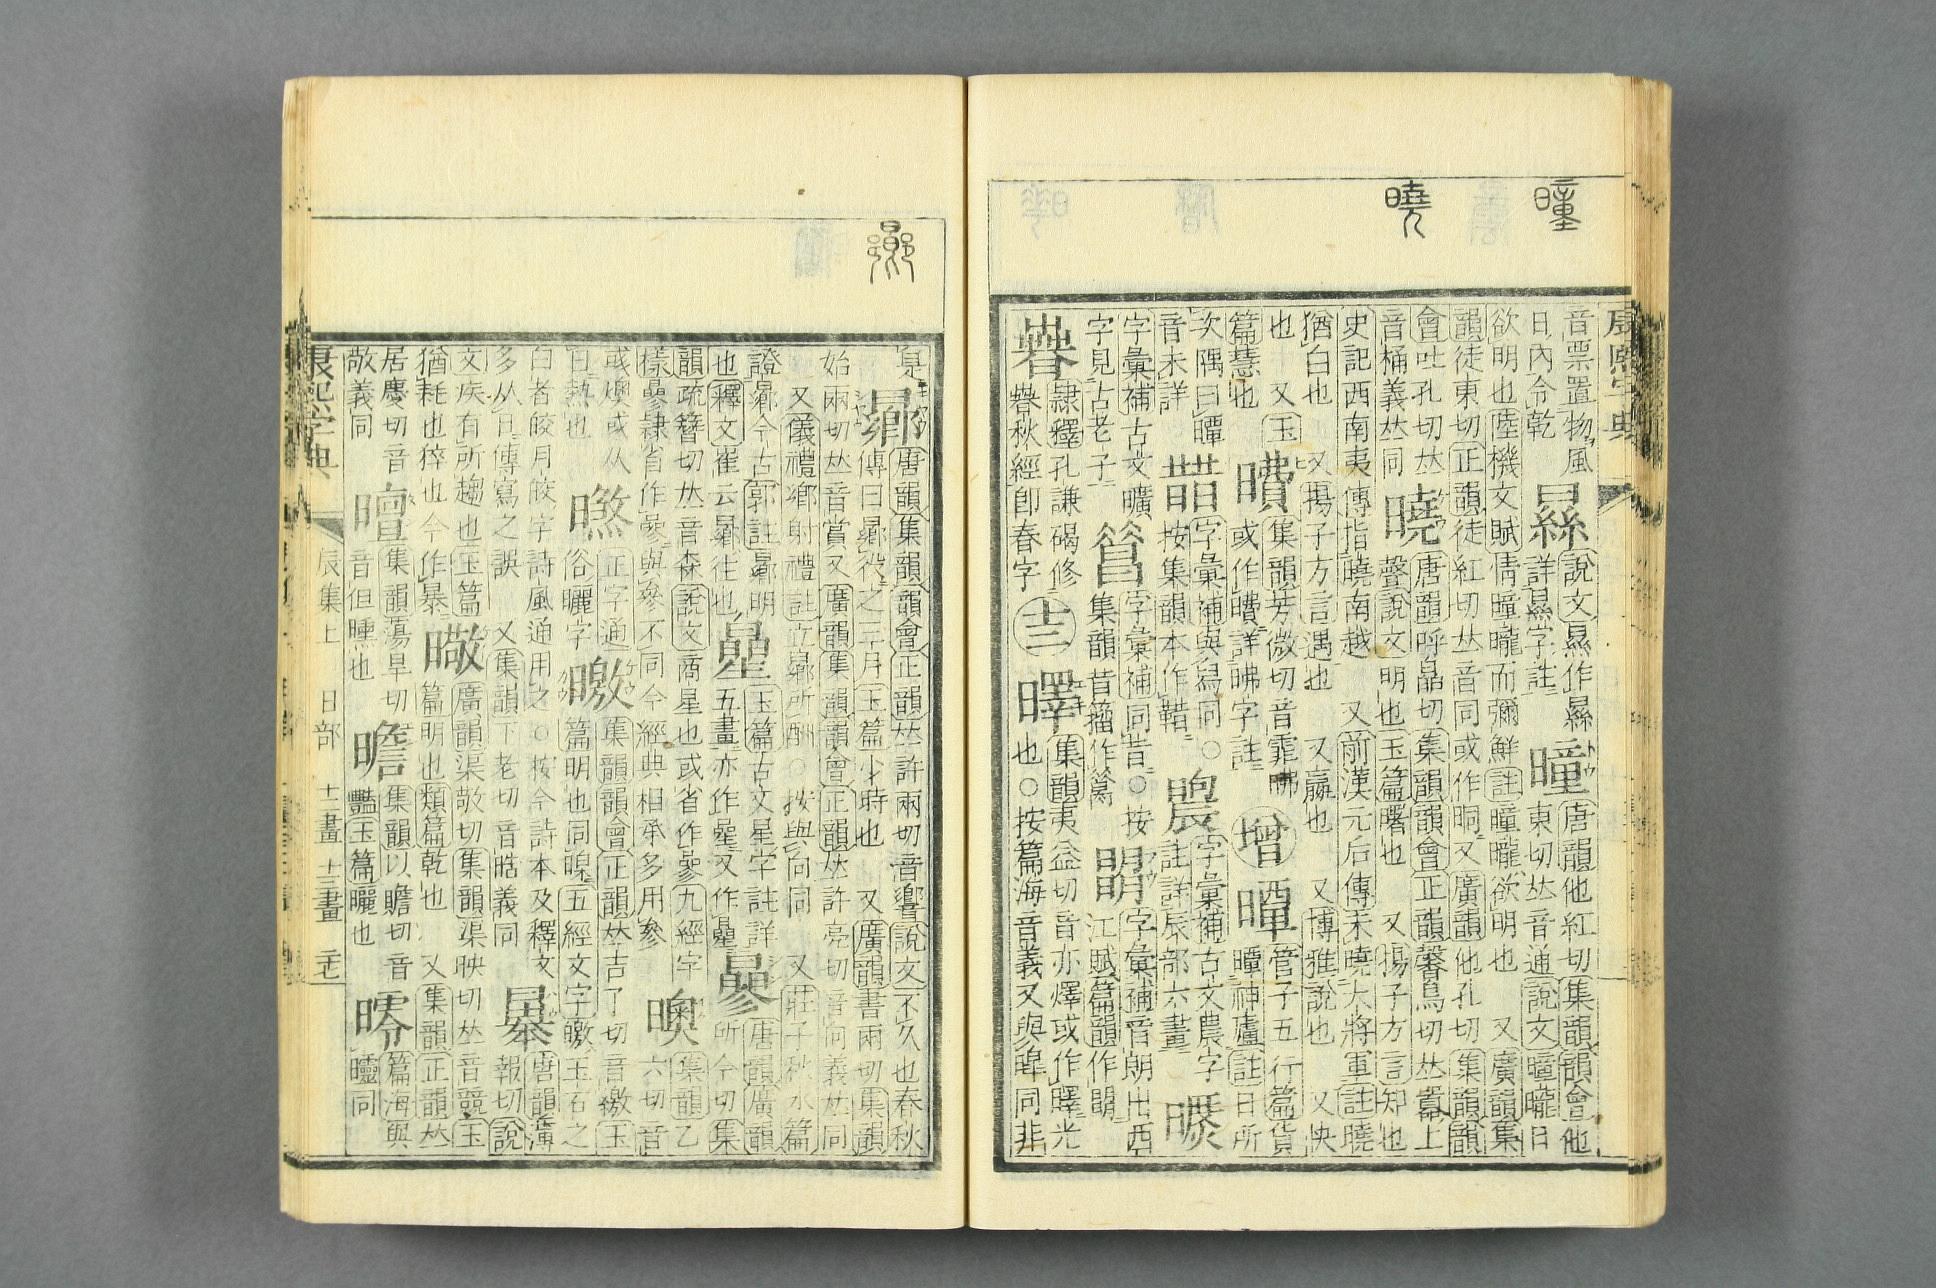 瞳
曉
音票置物風
日內令乾
㬎
說文㬎作㬎
詳㬎字註
曈
唐韻他紅切集韻韻會他
東切𠀤音通說文曈曨日
欲明也陸機文賦情曈曨而彌鮮註曈曨欲明也 又廣韻集
韻徒東切正韻徒紅切𠀤音同或作晍又廣韻他孔切集韻韻
會吐孔切𠀤
音桶義𠀤同
曉
唐韻呼皛切集韻韻會正韻馨鳥切𠀤囂上
聲說文明也玉篇曙也 又揚子方言知也
史記西南夷傳指曉南越 又前漢元后傳未曉大將軍註曉
猶白也 又揚子方言過也 又嬴也 又博雅說也 又快
也 又玉
篇慧也
曊
集韻芳微切音霏曊
或作曊詳昲字註
增
㬂
管子五行篇貨
曋神廬註日所
次隅曰曋
音未詳
㬈
字彙補與舄同○
按集韻本作䧿
㬊
字彙補古文農字
註詳辰部六畫
㬥
字彙補古文曠
字見古老子
簮
字彙補同昔○按
集韻昔籀作㫺
朙
字彙補音朗出西
江賦篇韻作朖
㫪
隸釋孔謙碣修
㫪秋經卽春字
十三
曎
集韻夷益切音亦燡或作曎光
也○按篇海音義又與睪同非
是
曏
唐韻集韻韻會正韻𠀤許兩切音響說文不久也春秋
傳曰曏役之三月玉篇少時也 又廣韻書兩切集韻
始兩切𠀤音賞又廣韻集韻韻會正韻𠀤許亮切音向義𠀤同
又儀禮鄉射禮註立曏所酬○按與向同 又莊子秋水篇
證曏今古郭註曏明
也釋文崔云曏往也
曐
玉篇古文星字註詳
五畫亦作曐又作曐
曑
唐韻廣韻
所今切集
韻疏簪切𠀤音森說文商星也或省作曑九經字
樣曑隸省作參與參不同今經典相承多用參
噢
集韻乙
六切音
或燠或从
日熱也
㬇
正字通
俗曬字
曒
集韻韻會正韻𠀤吉了切音皦玉
篇明也同皦五經文字皦玉石之
白者皎月皎字詩風通用之○按今詩本及釋文
多从日傳寫之誤 又集韻下老切音晧義同
曓
唐韻薄
報切說
文疾有所趨也玉篇
猶耗也猝也今作暴
㬌
廣韻渠敬切集韻渠映切𠀤音競玉
篇明也類篇乾也 又集韻正韻𠀤
居慶切音
敬義同
㬆
集韻蕩旱切
音但䁴也
瞻
集韻以贍切音
豔玉篇曬也
㬡
篇海與
㬡同
康熙字典
辰集上 日部 十二畫 十三畫